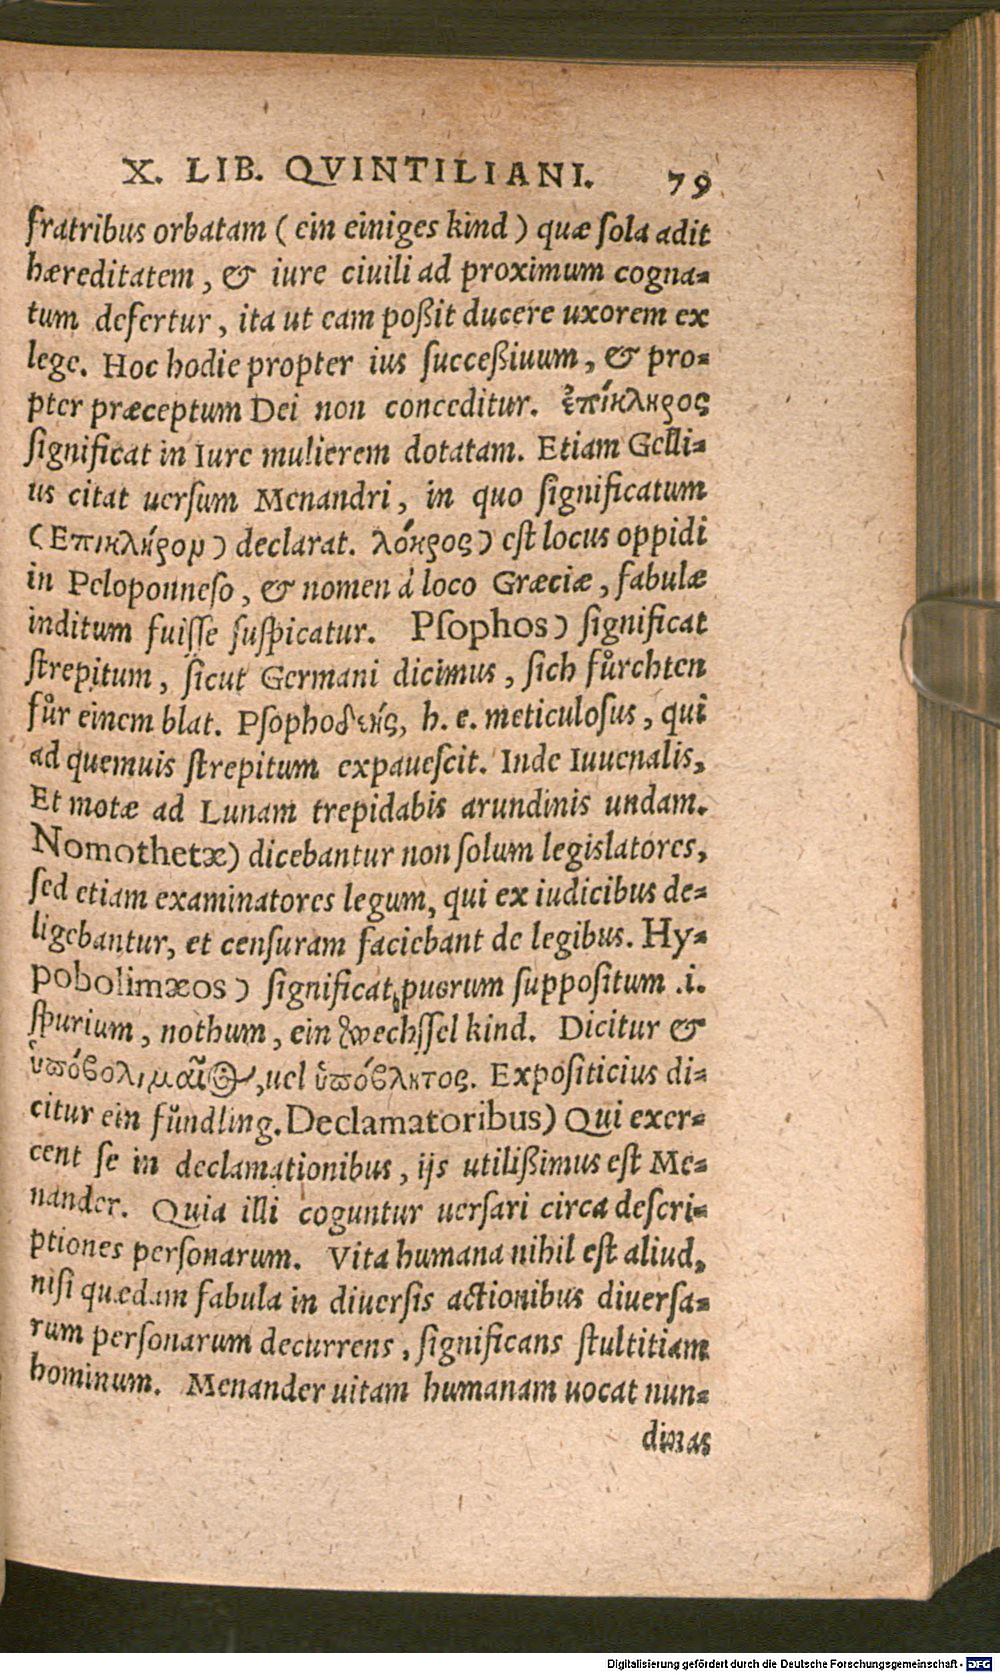 X. LIB. QVINTILIANI. 79
fratribus orbatam ( ein einiges kind ) quæ ſola adit
hæreditatem, & iure ciuili ad proximum cogna=
tum defertur, ita ut eam poßit ducere uxorem ex
lege. Hoc hodie propter ius ſucceßiuum, & pro=
pter præceptum Dei non conceditur. ἐπίκληρος
ſignificat in Iure mulierem dotatam. Etiam Gelli=
us citat uerſum Menandri, in quo ſignificatum
(Επικλήρου ) declarat. λόκρος ) eſt locus oppidi
in Peloponneſo, & nomen à loco Græciæ, fabulæ
inditum fuiſſe ſuſpicatur. Pſophos ) ſignificat
ſtrepitum, ſicut Germani dicimus, ſich fůrchten
fůr einem blat. Pſophoδεής, h. e. meticuloſus, qui
ad quemuis ſtrepitum expaueſcit. Inde Iuuenalis,
Et motæ ad Lunam trepidabis arundinis undam.
Nomothetæ) dicebantur non ſolum legislatores,
ſed etiam examinatores legum, qui ex iudicibus de=
ligebantur, et cenſuram faciebant de legibus. Hy=
pobolimæos ) ſignificat puerum ſuppoſitum .i.
ſpurium, nothum, ein Wechſſel kind. Dicitur &
ὑπόβολιμαῖος, uel ὑπόβλητος. Expoſiticius di=
citur ein fůndling. Declamatoribus) Qui exer=
cent ſe in declamationibus, ijs utilißimus eſt Me=
nander. Quia illi coguntur uerſari circa deſcri=
ptiones perſonarum. Vita humana nihil eſt aliud,
niſi quædam fabula in diuerſis actionibus diuerſa=
rum perſonarum decurrens, ſignificans ſtultitiam
hominum. Menander uitam humanam uocat nun=
dinas
Digitalisierung gefördert durch die Deutsche Forschungsgemeinschaft - DFG